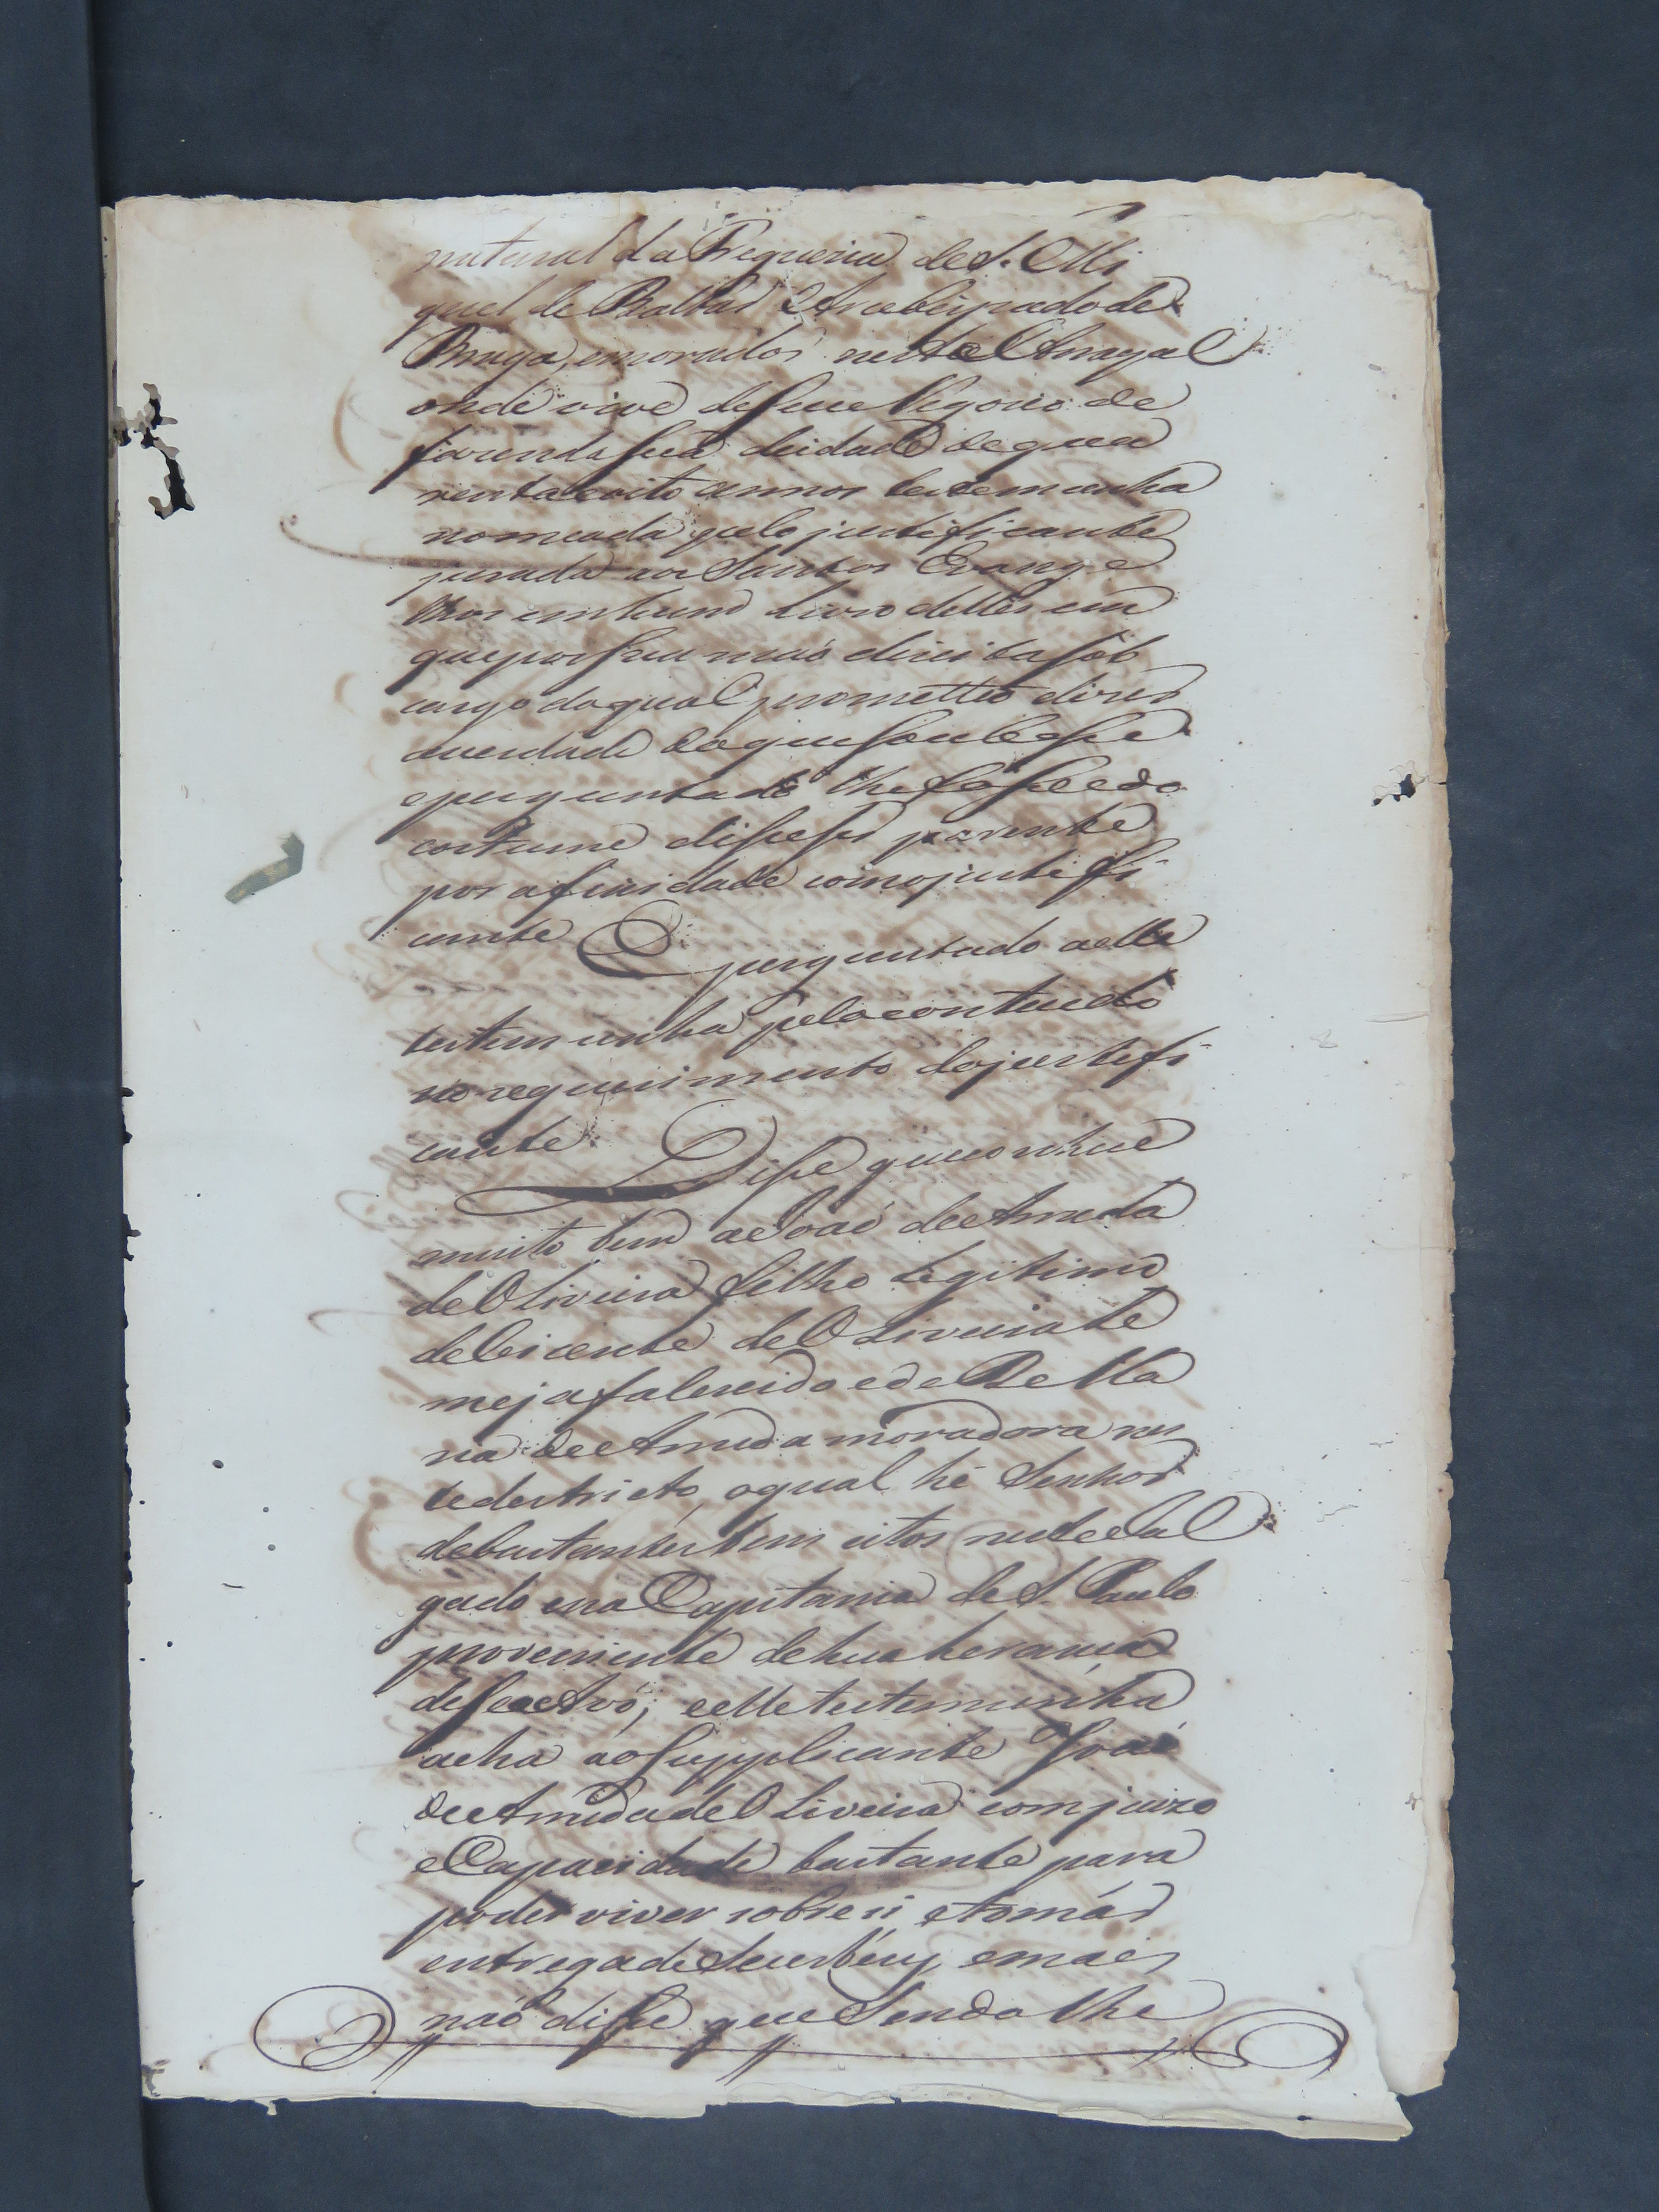 natural da Freguezia de S. Mi
guel de Baltar Arcebispado de
Braga, emorador neste Arrayal
onde vive de seu Negocio de
fazenda seca deidade de qua
renta eoito annos testemunha
nomeada pelo justificante
jurada aos Santos Evange
lhos em hum Livro delles em
que pos sua maõ direita sob
cargo do qual prometteo dizer
averdade do que soubesse
eperguntado lhe fosse edo
costume disse ser parente
por afinidade como justifi
cante E perguntado aelle
testemunha pelo contheudo
no requerimento dojustifi
cante Disse que conhece
muito bem aJoaõ de Arruda
de Oliveira filho Legitimo
de Vicente de Oliveira Le
me ja falescido e de Bella
na de Arruda moradora nes
te destricto, oqual hé Senhor
debastantes bens citos neste Jul
gado ena Capitania de S. Paulo
proveniente de hua herança
de seu Avó; eelle testemunha
acha ao Supplicante Joaõ
de Arruda de Oliveira com juizo
e Capacidade bastante para
poder viver sobre si, etomár
entrega de Seus béns, emais
naõ disse que Sendo lhe